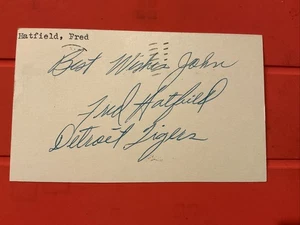 Hatfield, Fred
Best Wishes John
Fred Hatfield
Detroit Tigers